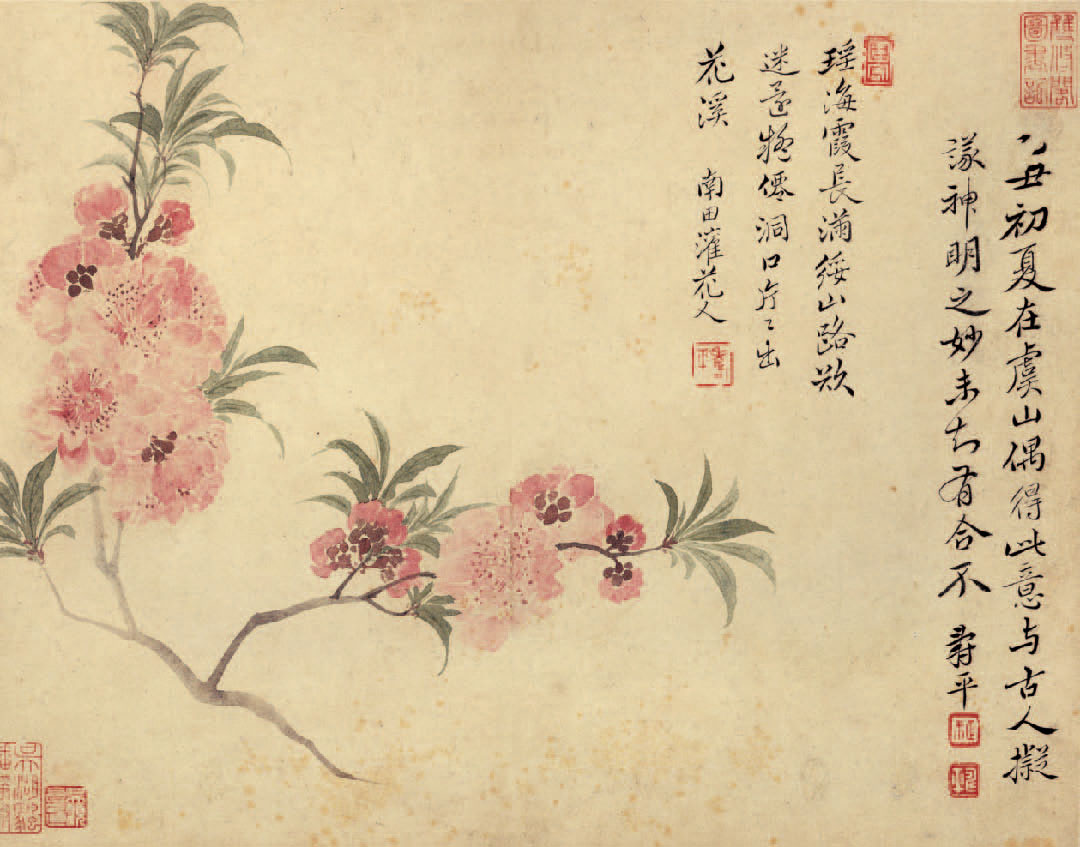 丑初夏在虞山偶得此意与古人擬
議神明之妙未知有合不 壽平
瑶海霞長滿綏山路欲
迷還疑僊洞口片〻出
花溪 南田灌花人